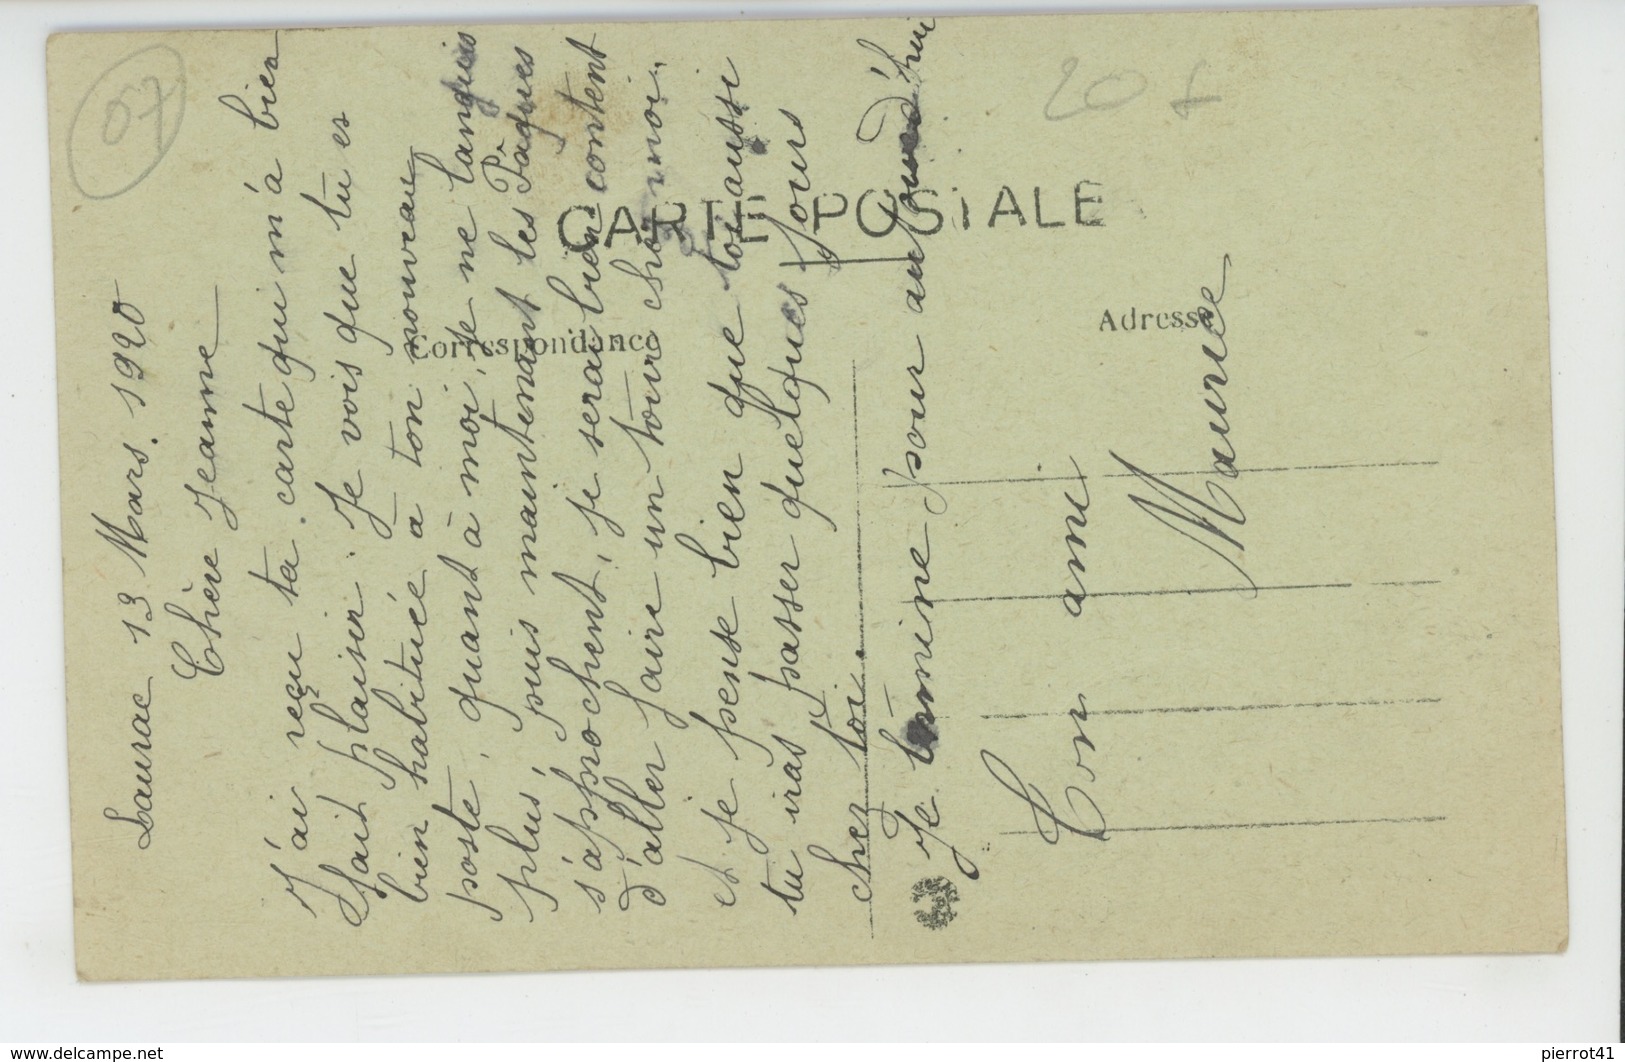 07
20 f
CARTE POSTALE
Correspondance
Adresse
Laurac 13 Mars. 1920
Chère Jeanne
J'ai reçu ta carte qui m'a bien
fait plaisir. Je vois que tu es
bien habituée a ton nouveau
poste, quant à moi, je ne languis
plus, puis maintenant les Pâques
s'approchent, je serai bien content
d'aller faire un tour chez moi,
et je pense bien que toi aussi
tu iras passer quelques jours
chez toi.
Je termine pour aujourd'hui
Ton ami
Maurice
www.delcampe.net
pierrot41